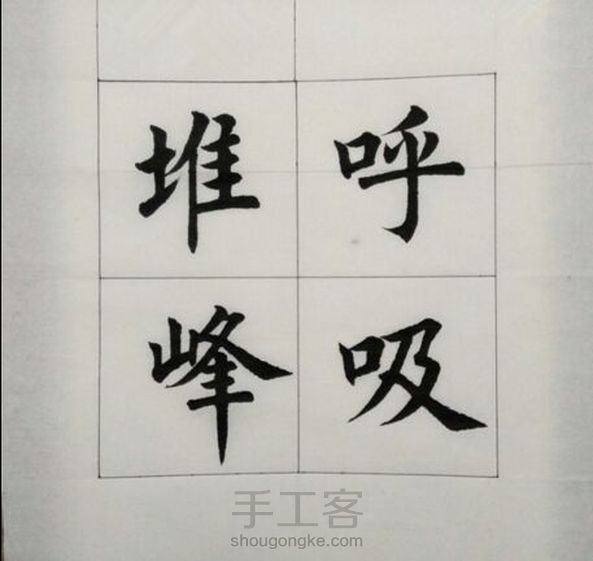 呼吸
堆峰
手工客
shougongke.com